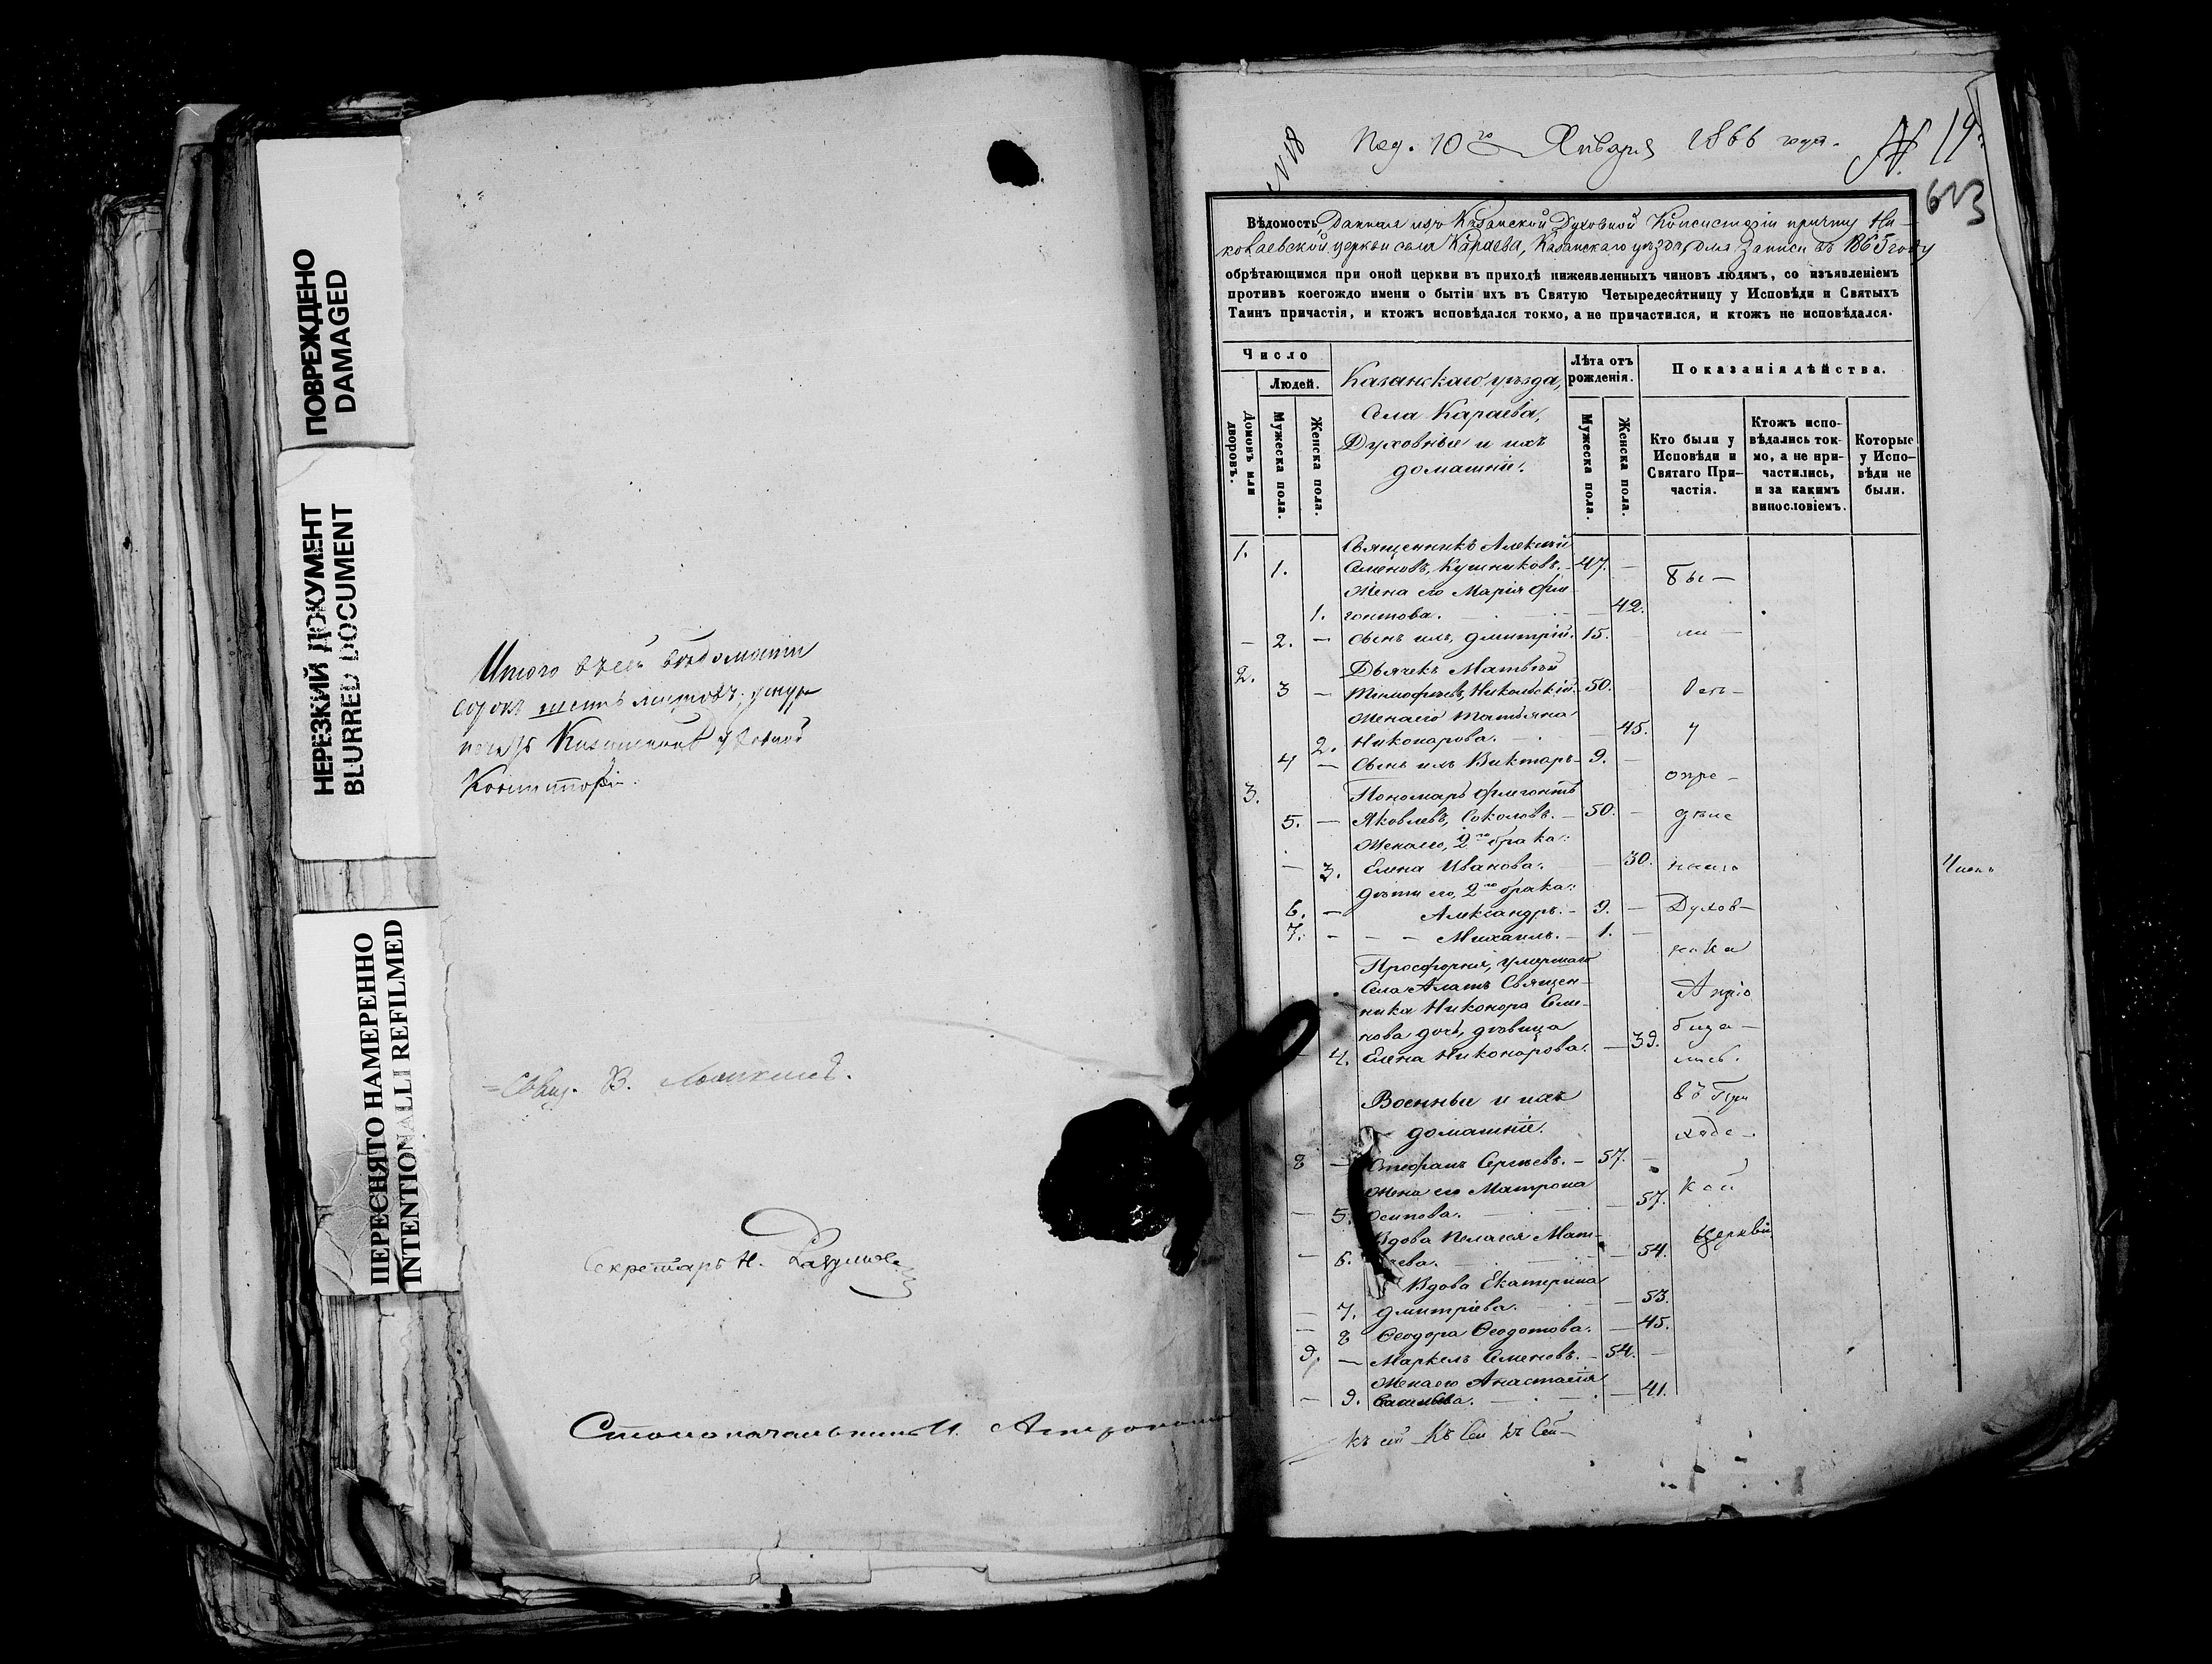 ПОВРЕЖДЕНО
DAMAGED
НЕРЕЗКИЙ ДОКУМЕНТ
BLURRED DOCUMENT
ПЕРЕСНЯТО НАМЕРЕННО
INTENTIONALLI REFILMED
Итого въ сей вѣдомости
сорокъ шесть листовъ; у шнура
печать Казанской Духовной
Консисторіи.
Свящ. В.
Секретарь Н.
Столоначальникъ И.
N 18
Под. 10го Января 1866 года.
N. 19.
613
Вѣдомость Данная изъ Казанской Духовной Консисторіи причту Ни-
колаевской церкви села Караева, Казанскаго уѣзда, для Записи въ 1865 году
обрѣтающимся при оной церкви въ приходѣ нижеявленныхъ чиновъ людямъ, со изъявленіемъ
противъ коегождо имени о бытіи ихъ въ Святую Четыредесятницу у Исповѣди и Святыхъ
Таинъ причастія, и ктожъ исповѣдался токмо, а не причастился, и ктожъ не исповѣдался.
Число
Людей.
Домовъ или дворовъ.
Мужеска пола.
Женска пола.
Казанскаго уѣзда,
Села Караева,
Духовные и ихъ
домашніе.
Лѣта отъ
рожденія.
Мужеска пола.
Женска пола.
Показанія дѣйства.
Кто были у
Исповѣди и
Святаго При-
частія.
Ктожъ испо-
вѣдались ток-
мо, а не при-
частились,
и за какимъ
винословіемъ.
Которые
у Испо-
вѣди не
были.
1. Священникъ Алексѣй
1. Семеновъ, Кушниковъ. 47. — Бы-
Жена его Марія Фли-
1. гонтова. — 42.
— 2. — Сынъ ихъ, Дмитрій. 15. — ли —
2. Дьячекъ Матвѣй
3 — Тимофеевъ, Никольскій. 50. —
Жена его Татьяна
2. Никонорова. — 45. у
4 — Сынъ ихъ Викторъ. 9. —
3. Пономарь Флегонтъ опре-
5. — Яковлевъ, Соколовъ. 50. — дѣле
Жена его, 2го брака:
— 3. Елена Иванова. — 30. ннаго
Дѣти его, 2го брака: Членъ
6. — Александръ. 9. — Духов-
7. — Михаилъ. 1. — ника
Просфорня, умершаго
Села Алатъ Священ-
ника Никонора Семе-
нова дочь, дѣвица
— 4. Елена Никонорова. — 39.
Военные и ихъ въ При
домашніе. ходс-
8 — Стефанъ Сергѣевъ. 57. —
Жена его Матрона кой
— 5. Осипова. — 57.
Вдова Пелагея Мат-
— 6. — 54. Церкви
Вдова Екатерина
— 7. Дмитріева. — 53.
— 8 Ѳеодора Ѳеодотова. — 45.
9. — Маркелъ Семеновъ. 54. —
Жена его Анастасія
— 9. — 41.
къ сей Къ Сей къ Сей